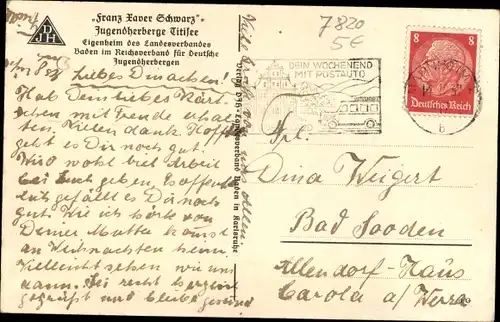 „Franz Xaver Schwarz"
Jugendherberge Titisee
Eigenheim des Landesverbandes
Baden im Reichsverband für Deutsche
Jugendherbergen
DJH
7820
5€
DEIN WOCHENEND
MIT POSTAUTO
8 8
Deutsches Reich
b
Verlag 1936 Landesverband Baden in Karlsruhe
Liebes Dinachen!
Hab Dein liebes Kärt-
chen mit Freude erhal-
ten. Vielen dank. Hoffe
geht es Dir noch gut.
Wird wohl viel Arbeit
bei Euch geben,
gefällt es Dir noch
gut. Wie ich hörte von
Deiner Mutter kommst
an Weihnachten heim.
Vielleicht sehen wir uns
dann. Sei recht herzlich
gegrüßt und bleibe gesund
Frl.
Dina Weigert
Bad Sooden
Allendorf-Haus
Carola a/Werra